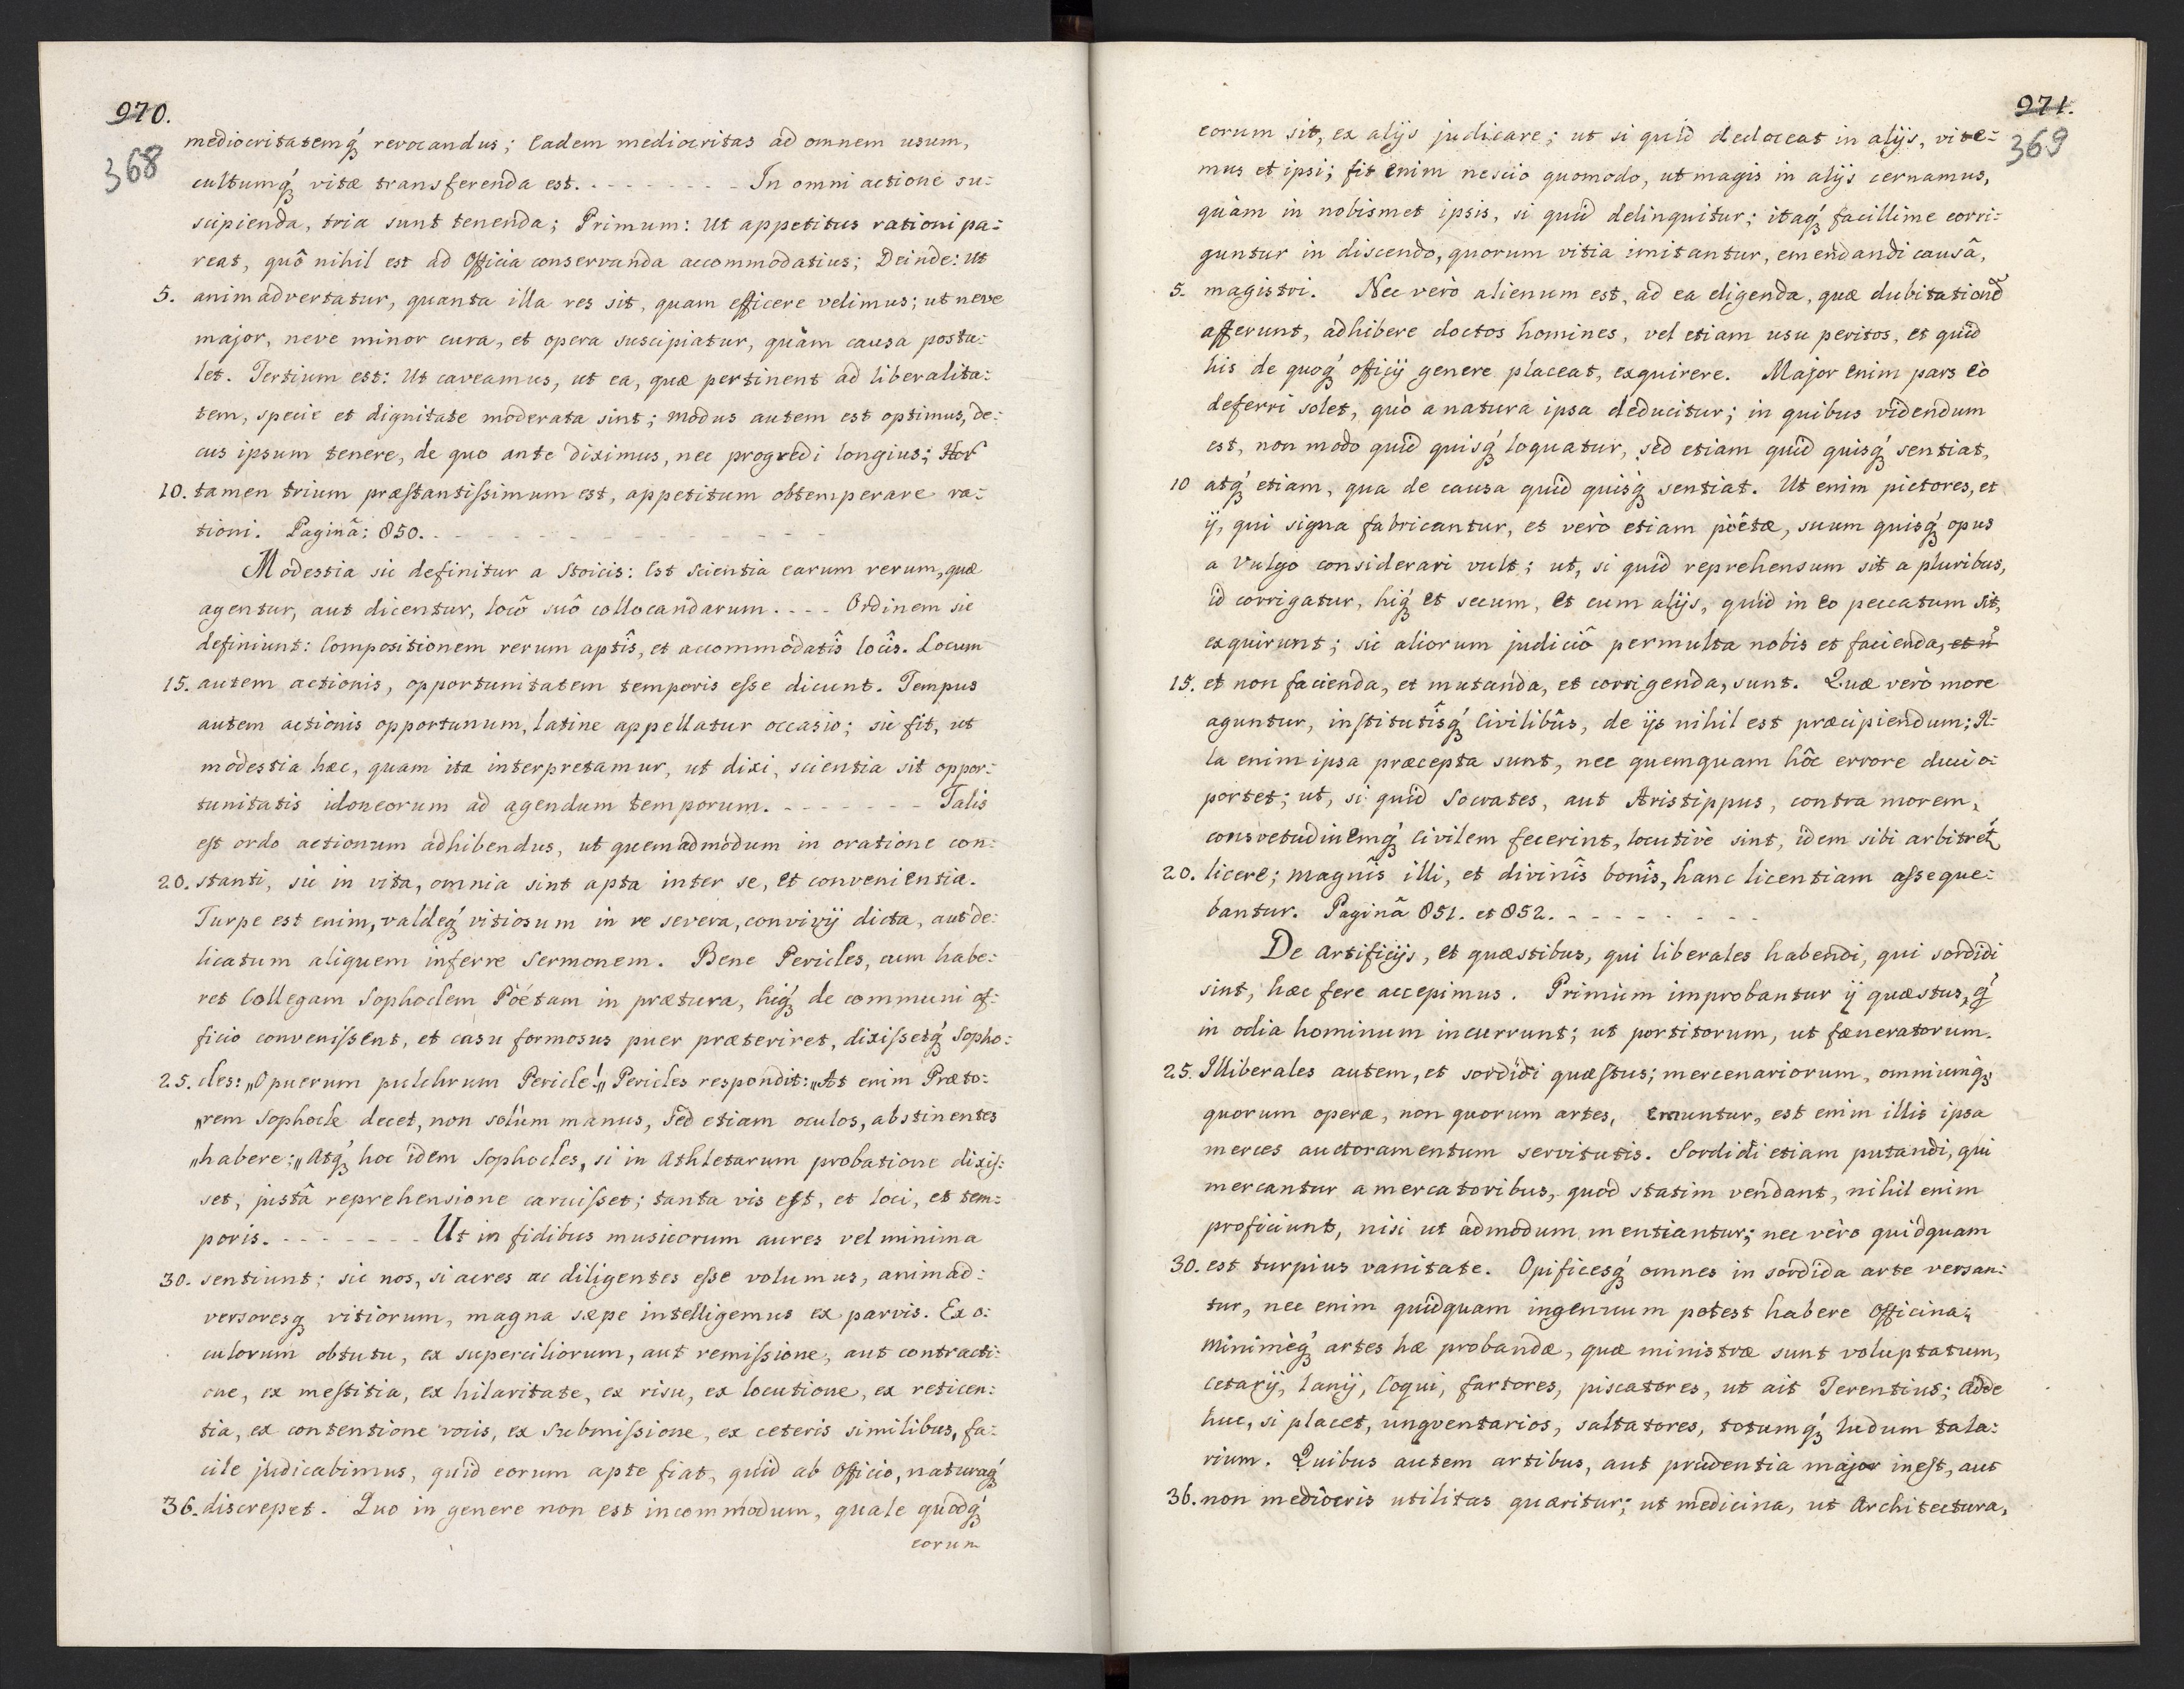 970.
368
mediocritatemq́ꝫ revocandus; Eadem mediocritas ad omnem usum,
cultumq́ꝫ vitæ transferenda est. - - - - - - - - In omni actione su=
scipienda, tria sunt tenenda; Primum: Ut appetitus rationi pa=
reat, quô nihil est ad Officia conservanda accommodatius; Deinde: Ut
5. animadvertatur, quanta illa res sit, quam efficere velimus; ut neve
major, neve minor cura, et opera suscipiatur, quàm causa postu=
let. Tertium est: Ut caveamus, ut ea, quæ pertinent ad liberalita=
tem, specie et dignitate moderata sint; Modus autem est optimus, de=
cus ipsum tenere, de quo ante diximus, nec progredi longius; Hor̄
10. tamen trium præstantiſsimum est, appetitum obtemperare ra=
tioni. Paginâ: 850. - - - - - - - - - - - -
Modestia sic definitur a Stoicis: Est Scientia earum rerum, quæ
agentur, aut dicentur, locô suô collocandarum. - - - Ordinem sic
definiunt: Compositionem rerum aptîs, et accommodatîs locîs. Locum
15. autem actionis, opportunitatem temporis eſse dicunt. Tempus
autem actionis opportunum, latine appellatur occasio; sic fit, ut
modestia hæc, quam ita interpretamur, ut dixi, scientia sit oppor=
tunitatis idoneorum ad agendum temporum. - - - - - - - Talis
est ordo actionum adhibendus, ut quemadmodum in oratione con=
20. stanti, sic in vita, omnia sint apta inter se, et convenientia.
Turpe est enim, valdeq́ꝫ vitiosum in re severa, convivij dicta, aut de=
licatum aliquem inferre Sermonem. Bene Pericles, cum habe=
ret Collegam Sophoclem Pöétam in prætura, hiq́ꝫ de communi of=
ficio conveniſsent, et casu formosus puer præteriret, dixiſsetq́ꝫ Sopho=
25. cles: „O puerum pulchrum Pericle!„ Pericles respondit: „At enim Præto=
„rem Sophocle decet, non solùm manus, Sed etiam oculos, abstinentes
„habere;„ Atq́ꝫ hoc idem Sophocles, si in Athletarum probatione dixiſ=
set, justâ reprehensione caruiſset; tanta vis est, et loci, et tem=
poris. - - - - - - - Ut in fidibus musicorum aures vel minima
30. sentiunt; sic nos, si acres ac diligentes eſse volumus, animad=
versoresqꝫ vitiorum, magna sæpe intelligemus ex parvis. Ex o=
culorum obtutu, ex superciliorum, aut remiſsione, aut contracti=
one, ex mestitia, ex hilaritate, ex risu, ex locutione, ex reticen=
tia, ex contentione vocis, ex Submiſsione, ex ceteris similibus, fa=
cile judicabimus, quid eorum apte fiat, quid ab Officio, naturaq́ꝫ
36. discrepet. Quo in genere non est incommodum, quale quodq́ꝫ
eorum
971.
369
eorum sit, ex alijs judicare; ut si quid dedoceat in alijs, vite=
mus et ipsi; fit enim nescio quomodo, ut magis in alijs cernamus,
quàm in nobismet ipsis, si quid delinquitur; itaq́ꝫ facillime corri=
guntur in discendo, quorum vitia imitantur, emendandi causâ,
5. magistri. Nec verò alienum est, ad ea eligenda, quæ dubitationē
afferunt, adhibere doctos homines, vel etiam usu peritos, et quid
his de quoq́ꝫ officij genere placeat, exquirere. Major enim pars eò
deferri solet, quò a natura ipsa deducitur; in quibus videndum
est, non modo quid quisq́ꝫ loquatur, sed etiam quid quisq́ꝫ sentiat,
10 atq́ꝫ etiam, qua de causa quid quisq́ꝫ sentiat. Ut enim pictores, et
ij, qui signa fabricantur, et verò etiam pöëtæ, suum quisq́ꝫ opus
a vulgo considerari vult; ut, si quid reprehensum sit a pluribus,
id corrigatur, hiq́ꝫ et secum, et cum alijs, quid in eo peccatum sit,
exquirunt; sic aliorum judiciô permulta nobis et facienda, et n̄
15. et non facienda, et mutanda, et corrigenda, sunt. Quæ verò more
aguntur, institutîsq́ꝫ Civilibûs, de ijs nihil est præcipiendum; Il=
la enim ipsa præcepta sunt, nec quemquam hôc errore duci o=
portet; ut, si quid Socrates, aut Aristippus, contra morem,
consvetudinemq́ꝫ Civilem fecerint, locutivè sint, idem sibi arbitret̃
20. licere; magnîs illi, et divinîs bonîs, hanc licentiam aſseque=
bantur. Paginâ 851. et 852. - - - - - - - -
De Artificijs, et quæstibus, qui liberales habendi, qui sordidi
sint, hæc fere accepimus. Primùm improbantur ij quæstus, q́
in odia hominum incurrunt; ut portitorum, ut fæneratorum.
25. Illiberales autem, et sordidi quæstus; mercenariorum, omniumq́ꝫ
quorum operæ, non quorum artes, emuntur, est enim illis ipsa
merces auctoramentum servitutis. Sordidi etiam putandi, qui
mercantur a mercatoribus, quod statim vendant, nihil enim
proficiunt, nisi ut admodum mentiantur; nec vèro quidquam
30. est turpius vanitate. Opificesq́ꝫ omnes in sordida arte versan=
tur, nec enim quidquam ingenuum potest habere Officina;
Minimèq́ꝫ artes hæ probandæ, quæ ministræ sunt voluptatum,
Cetarij, Lanij, Coqui, fartores, piscatores, ut ait Terentius; Adde
huc, si placet, ungventarios, saltatores, totumq́ꝫ ludum tala=
rium. Quibus autem artibus, aut prudentia major inest, aut
36. non mediocris utilitas quæritur; ut medicina, ut Architectura,